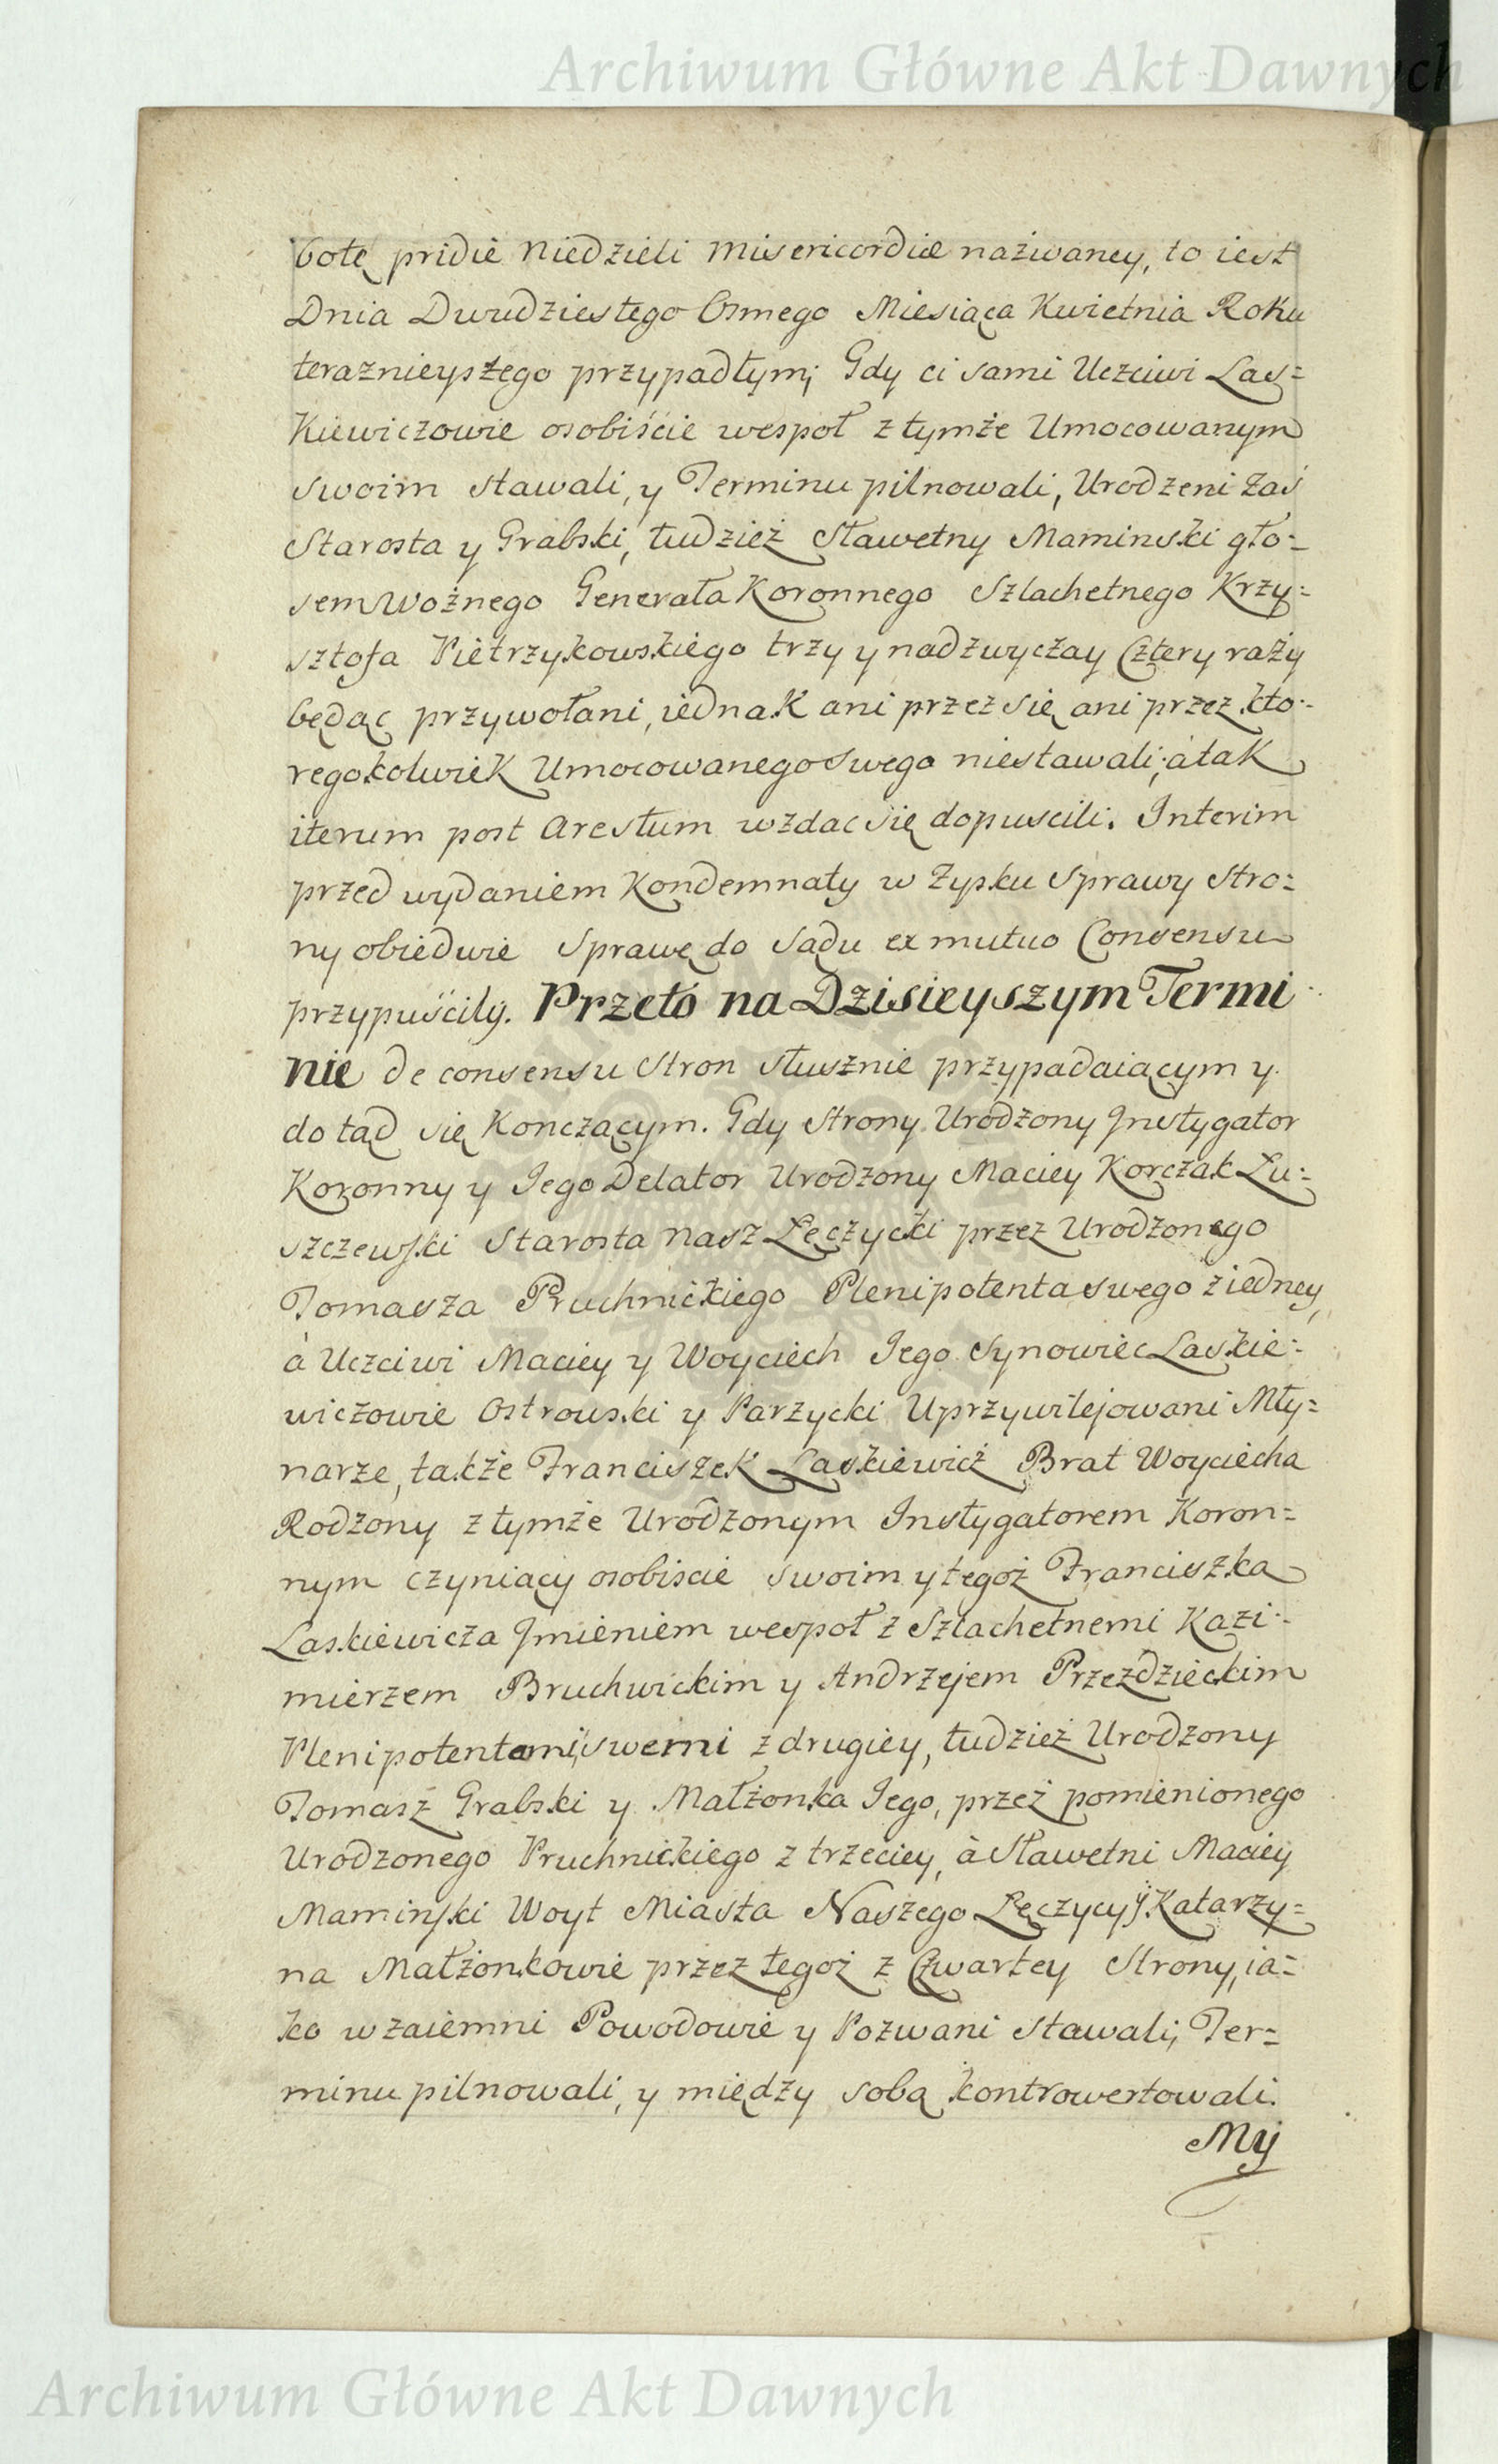 Archiwum Główne Akt Dawnych
botę pridie Niedzieli Misericordiæ nażwaney, to iest
Dnia Dwudziestego Osmego Miesiąca Kwietnia Roku
teraznieyszego przypadłym; Gdy ci sami Uczciwi Las=
Kiewiczowie osobiście wespoł z tymże Umocowanym
swoim stawali, y Terminu pilnowali, Urodzeni Zaś
Starosta y Grabski, tudzież Sławetny Maminski gło=
sem Woźnego Generała Koronnego Szlachetnego Krzy=
sztofa Pietrzykowskiego trzy y nadzwyczay Cztery raży
będąc przywołani, iednak ani przez się ani przez kto=
regokolwiek Umocowanego swego niestawali; a tak
iterum post Arestum wzdac się dopuscili. Interim
przed wydaniem Kondemnaty w Zysku Sprawy Stro=
ny obiedwie Sprawę do Sądu ex mutuo Consensu
przypuściły. Przeto na Dzisieyszym Termi
nie de consensu Stron słusznie przypadaiącym y
do tąd się Konczącym. Gdy Strony Urodżony Instygator
Koronny y Iego Delator Urodżony Maciey Korczak Lu=
szczewski Starosta Nasz Łęczycki przez Urodzonego
Tomasza Pruchnickiego Plenipotenta swego z iedney,
à Uczciwi Maciey y Woyciech Iego Synowiec Laskie=
wiczowie Ostrowski y Parzycki Uprzywilejowani Mły=
narze, także Franciszek Laskiewicż Brat Woyciecha
Rodżony z tymże Urodżonym Instygatorem Koron=
nym czyniący osobiscie swoim y tegoż Franciszka
Laskiewicza Imieniem wespoł z Szlachetnemi Kazi=
mierzem Bruchwickim y Andrzejem Przezdzieckim
Plenipotentami swemi z drugiey, tudzież Urodzony
Tomasz Grabski y Małżonka Iego, przez pomienionego
Urodzonego Pruchnickiego z trzeciey, à Sławetni Maciey
Maminski Woyt Miasta Naszego Łęczycy y Katarzy=
na Małżonkowie przez tegoż z Czwartey Strony, ia=
ko wzaiemni Powodowie y Pozwani stawali, Ter=
minu pilnowali, y między sobą kontrowertowali.
My
Archiwum Główne Akt Dawnych